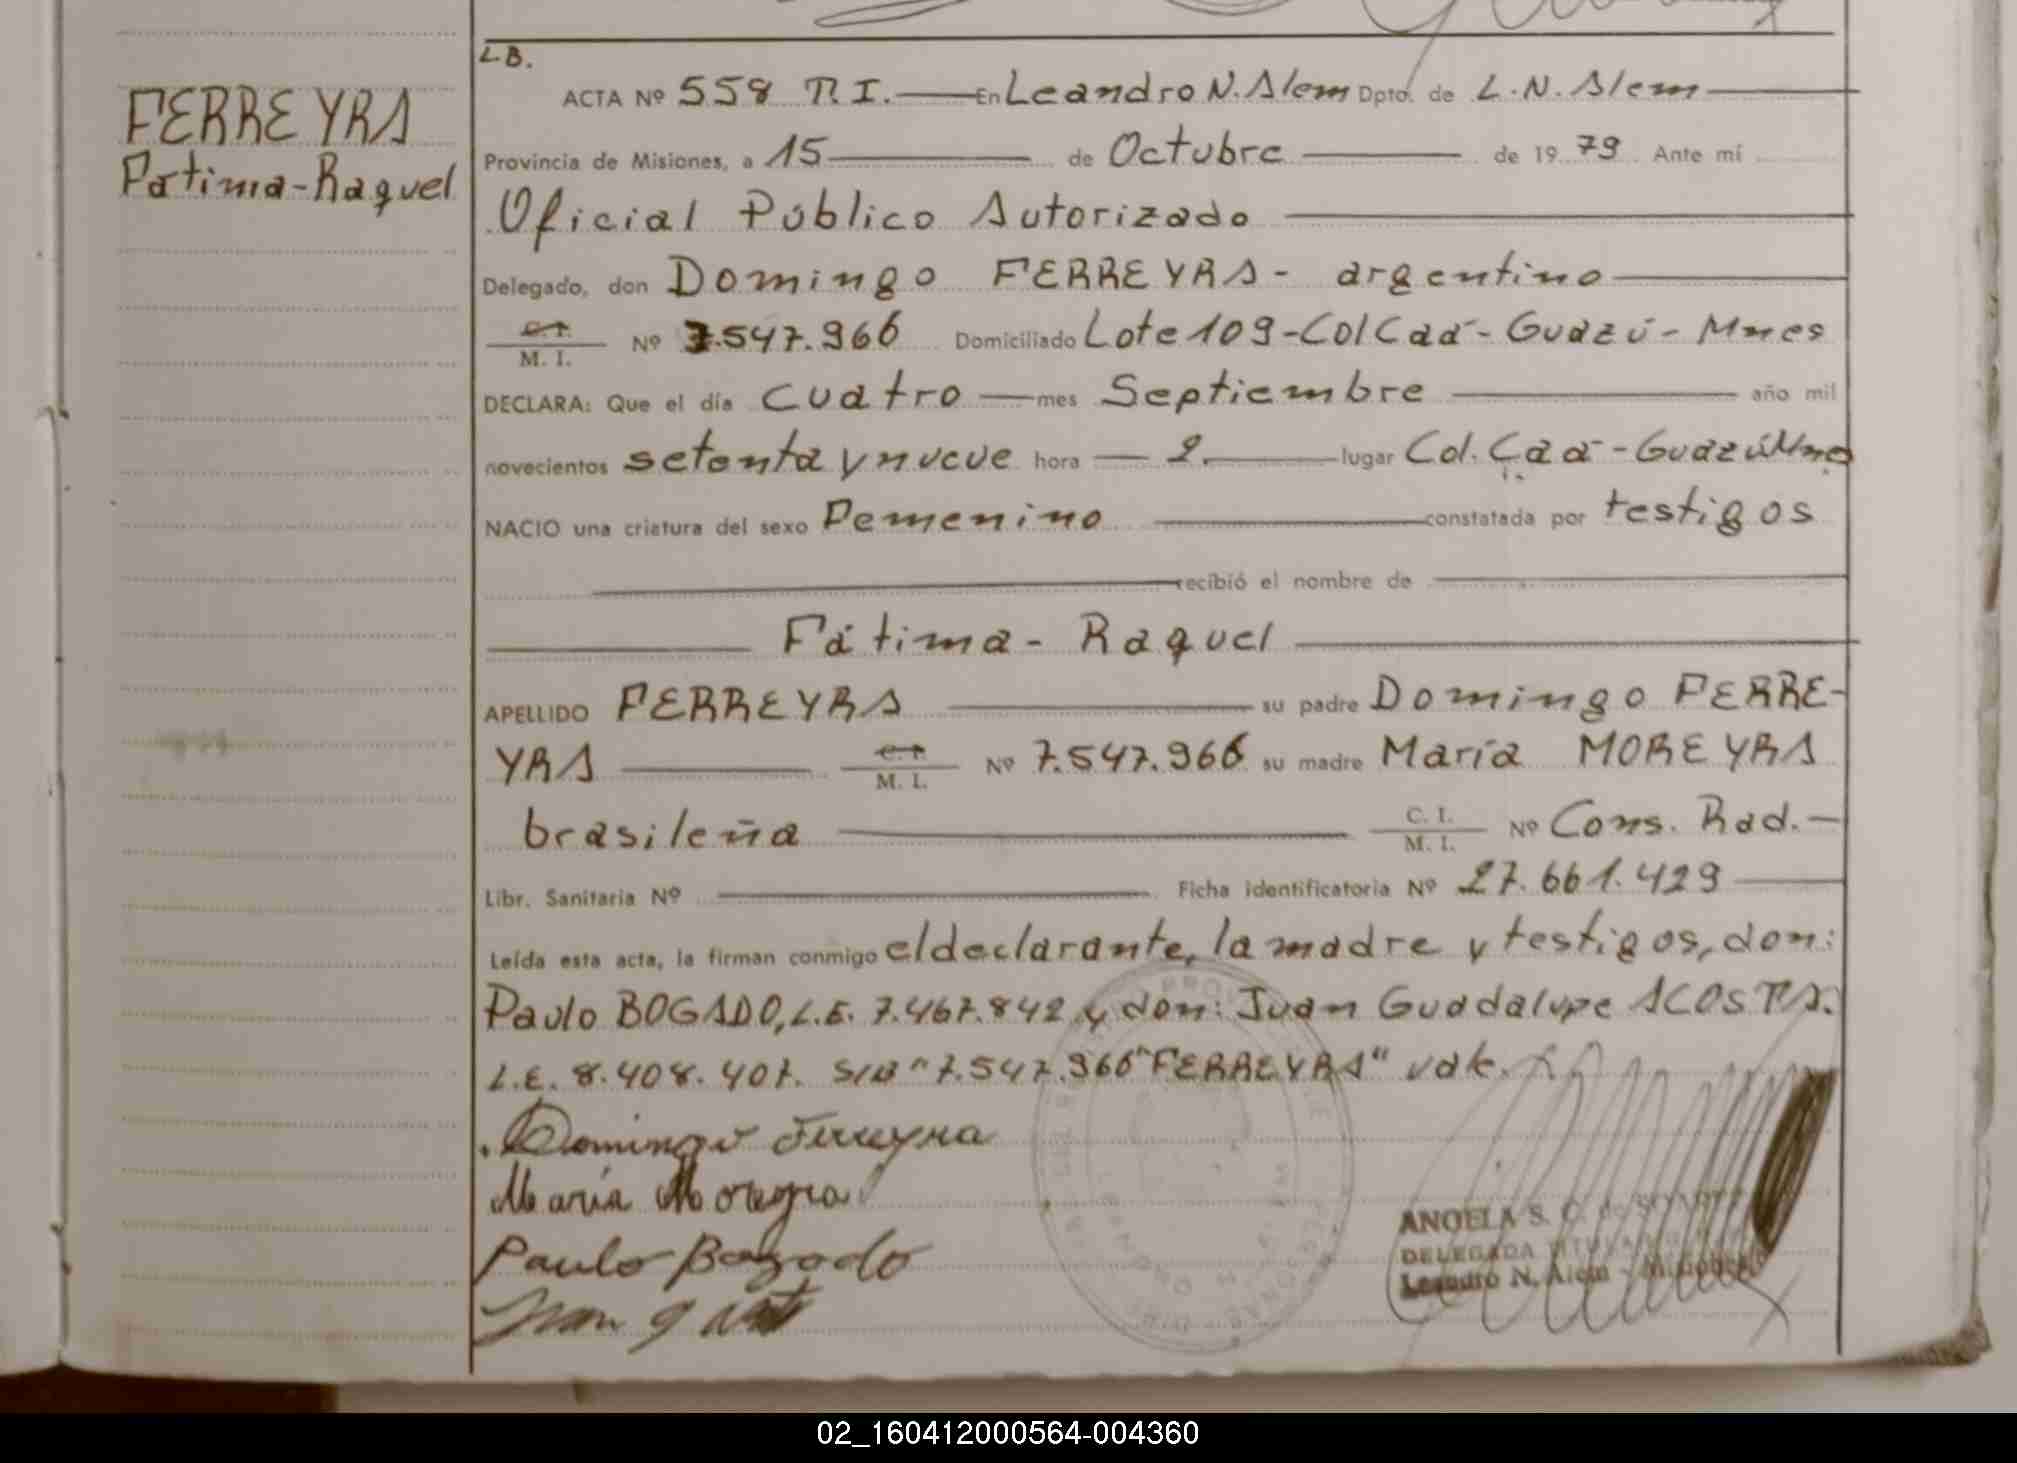 L.B.
FERREYRA
Fátima-Raquel
ACTA Nº 558 T. I. En Leandro N. Alem Dpto. de L. N. Alem
Provincia de Misiones, a 15 de Octubre de 1979 Ante mí
Oficial Público Autorizado
Delegado, don Domingo FERREYRA - argentino
C. I. / M. I. Nº 7.547.966 Domiciliado Lote 109-Col Caá-Guazú-Mnes
DECLARA: Que el día cuatro mes Septiembre año mil
novecientos setenta y nueve hora 2. lugar Col. Caá-Guazú Mnes
NACIO una criatura del sexo Femenino constatada por testigos
recibió el nombre de
Fátima - Raquel
APELLIDO FERREYRA su padre Domingo FERRE-
YRA C. I. / M. I. Nº 7.547.966 su madre María MOREYRA
brasileña C. I. / M. I. Nº Cons. Rad.
Libr. Sanitaria Nº Ficha identificatoria Nº 27.661.429
Leída esta acta, la firman conmigo el declarante, la madre y testigos, don:
Paulo BOGADO, L.E. 7.467.842 y don: Juan Guadalupe ACOSTA.
L.E. 8.408.407. S/B "7.547.966" "FERREYRA" vale.
Domingo Ferreyra
María Moreyra
Paulo Bogado
Juan g
ANGELA S. C. de
DELEGADA TITULAR
Leandro N. Alem - Misiones
02_160412000564-004360